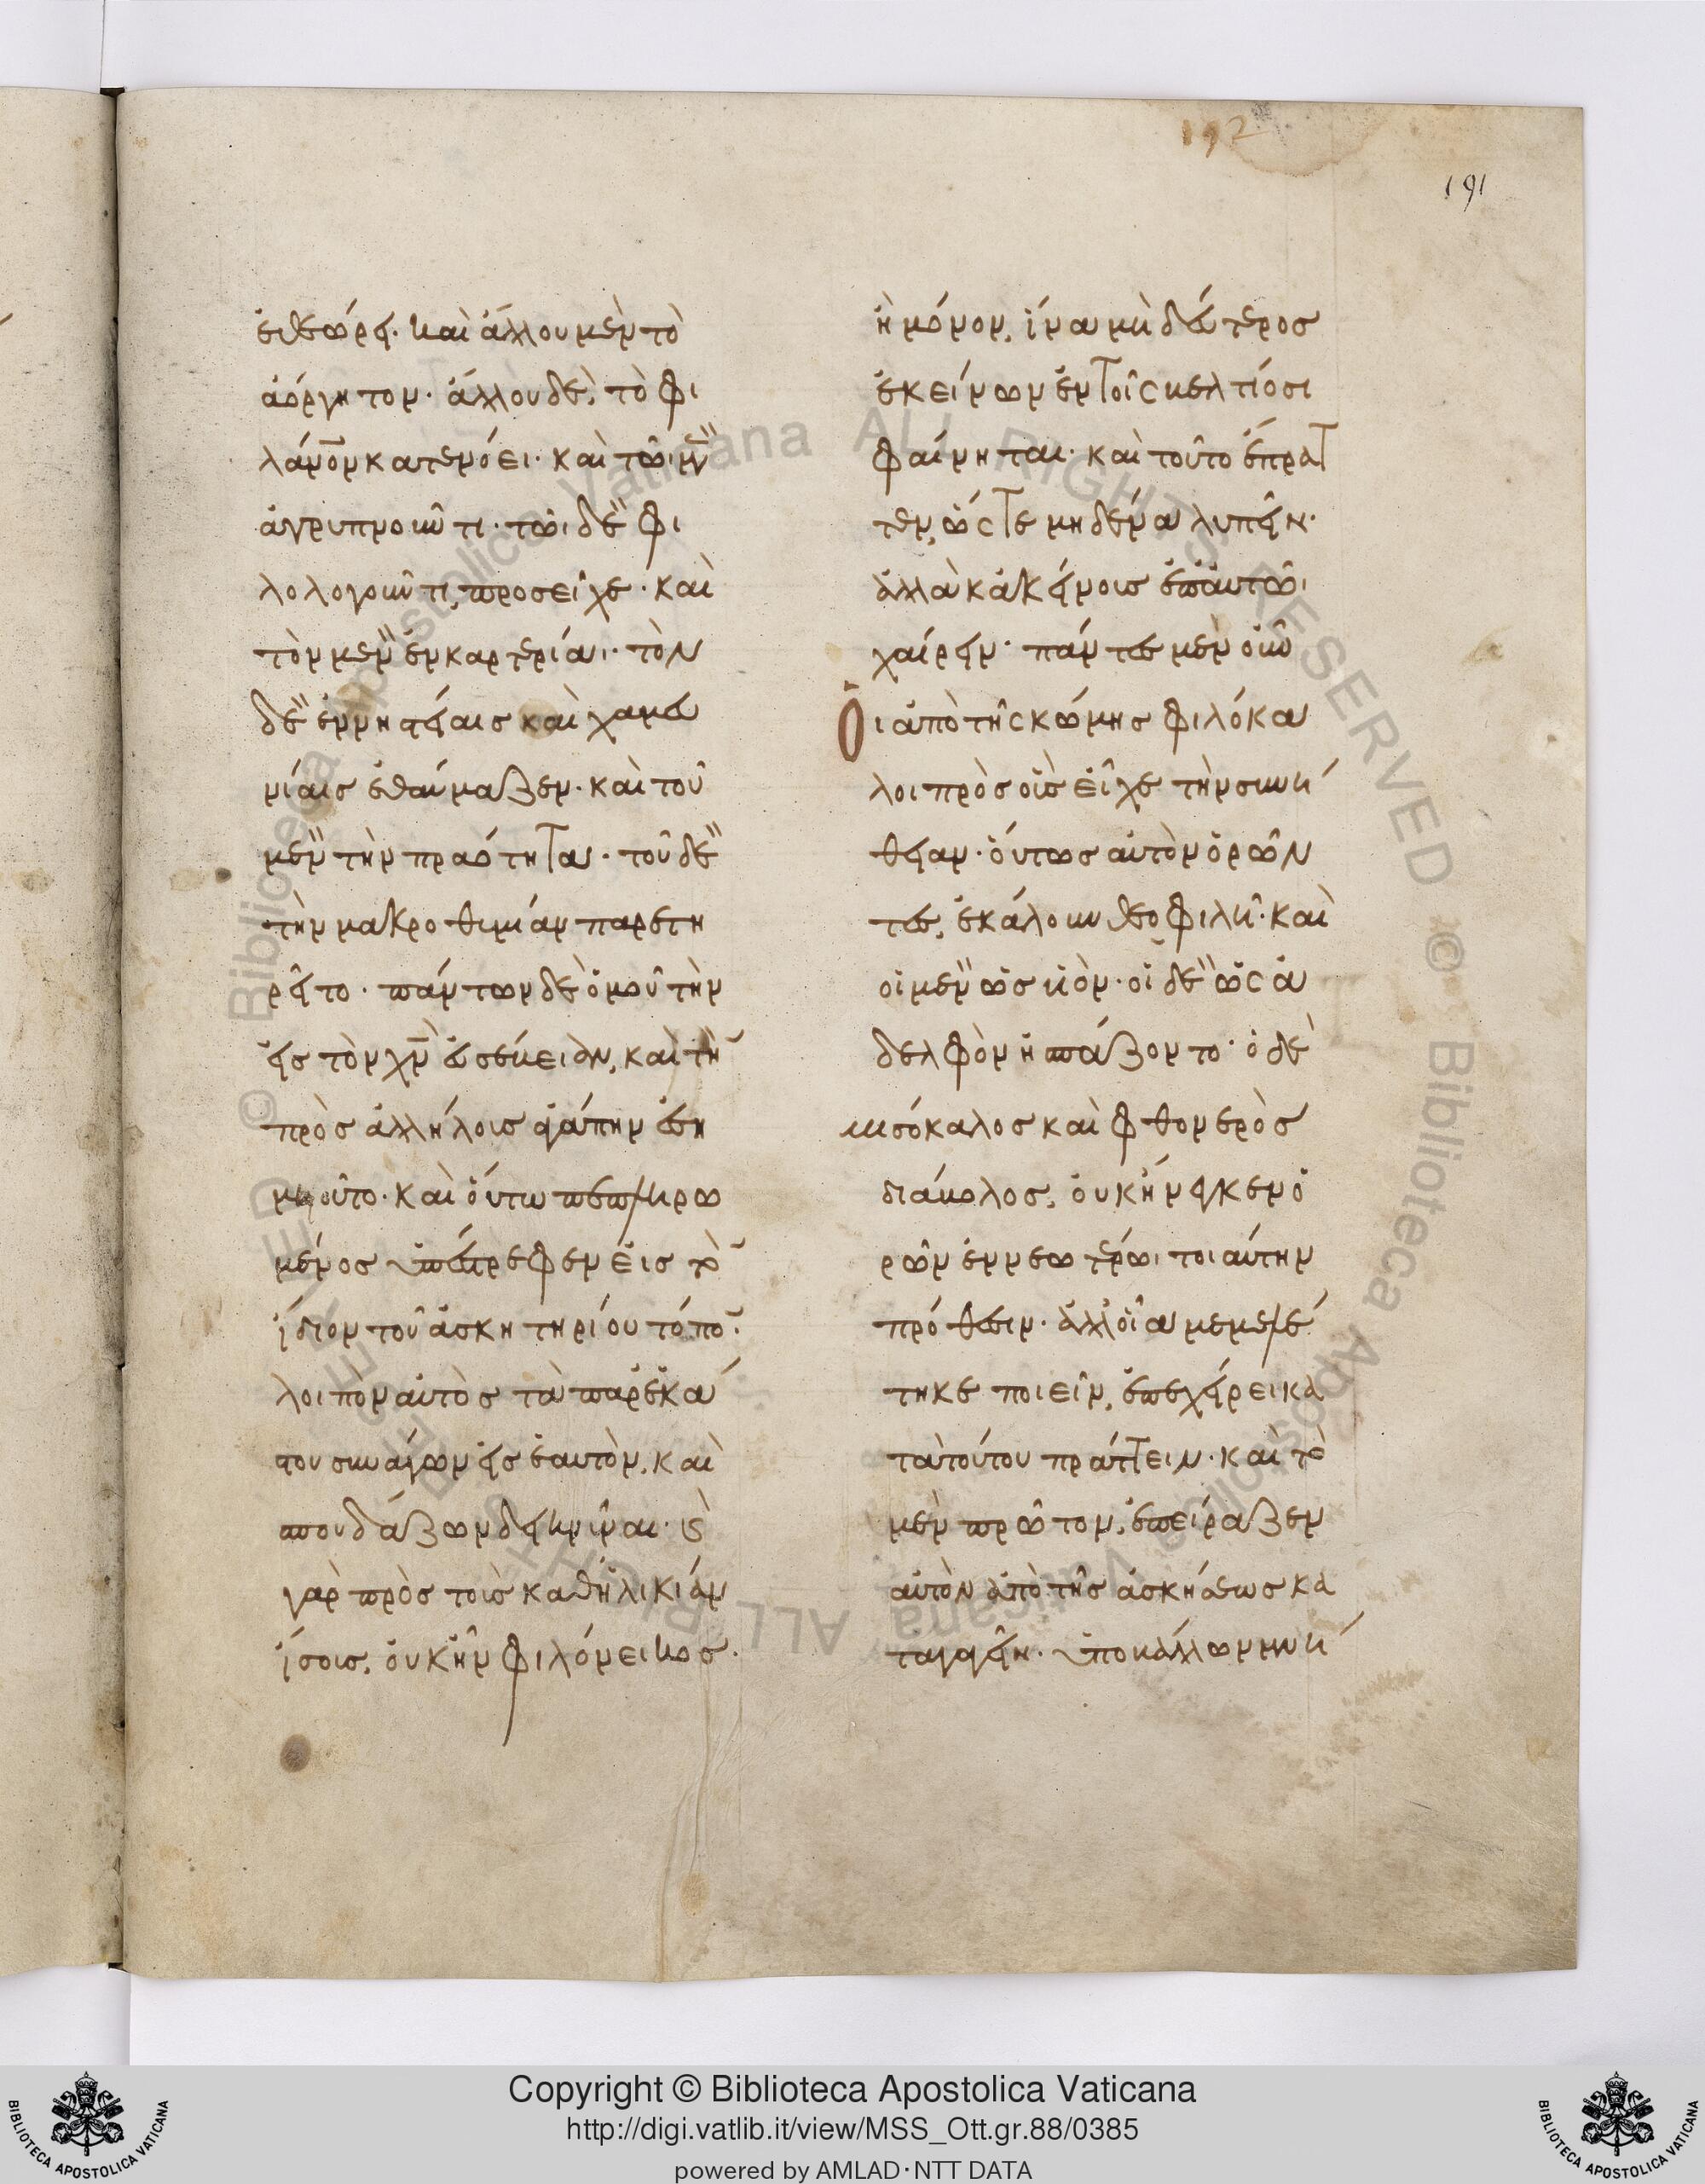 192
191
ἐθεώρει· καὶ ἄλλου μὲν τὸ
ἀόργητον· ἄλλου δὲ, τὸ φι
λάνο̅ν κατενόει· καὶ τῶι μ̅ν
ἀγρυπνοῦντι· τῶι δὲ φι
λολογοῦντι, προσεῖχε· καὶ
τὸν μὲν ἐν καρτερίαι· τὸν
δὲ ἐν νηστείαις καὶ χαμευ
νίαις ἐθαύμαζεν· καὶ τοῦ
μὲν τὴν πραότητα· τοῦ δὲ
τὴν μακροθυμίαν παρετη
ρεῖτο· πάντων δὲ ὁμοῦ τὴν
εἰς τὸν χ̅ν εὐσέβειαν, καὶ τὴ
πρὸς ἀλλήλους ἀγάπην ἐση
μειοῦτο· καὶ οὕτω πεπληρω
μένος ὑπέστρεφεν εἰς τὸ
ἴδιον τοῦ ἀσκητηρίου τόπο·
λοιπὸν αὐτὸς τὰ παρ' ἑκά
στου συνάγων εἰς ἑαυτὸν, καὶ
σπουδάζων δεικνύναι· ϗ
γὰρ πρὸς τοὺς καθ' ἡλικίαν
ἴσους, οὐκ ἦν φιλόνεικος·
ἢ μόνον, ἵνα μὴ δεύτερος
ἐκείνων ἐν τοῖς βελτίοσι
φαίνηται· καὶ τοῦτο ἔπρατ
τεν, ὥστε μηδένα λυπεῖν·
ἀλλὰ κἀκείνους ἐπ' αὐτῶι
χαίρειν· πάντες μὲν οὖν
Οἱ ἀπὸ τῆς κώμης φιλόκα
λοι πρὸς οὓς εἶχε τὴν συνή
θειαν· οὕτως αὐτὸν ὁρῶν
τες, ἐκάλουν θεοφιλῆ· καὶ
οἱ μὲν ὡς υἱὸν· οἱ δὲ ὡς ἀ
δελφὸν ἠσπάζοντο· ὁ δὲ
μισόκαλος καὶ φθονερὸς
διάβολος, οὐκ ἤνεγκεν ὁ
ρῶν ἐν νεωτέρωι τοιαύτην
πρόθεσιν· ἀλλ' οἷα μεμελέ
τηκε ποιεῖν, ἐπεχείρει κα
τὰ τούτου πράττειν· καὶ τὸ
μὲν πρῶτον, ἐπείραζεν
αὐτὸν ἀπὸ τῆς ἀσκήσεως κα
ταγαγεῖν· ὑποβάλλων μνή
Copyright © Biblioteca Apostolica Vaticana
http://digi.vatlib.it/view/MSS_Ott.gr.88/0385
powered by AMLAD·NTT DATA